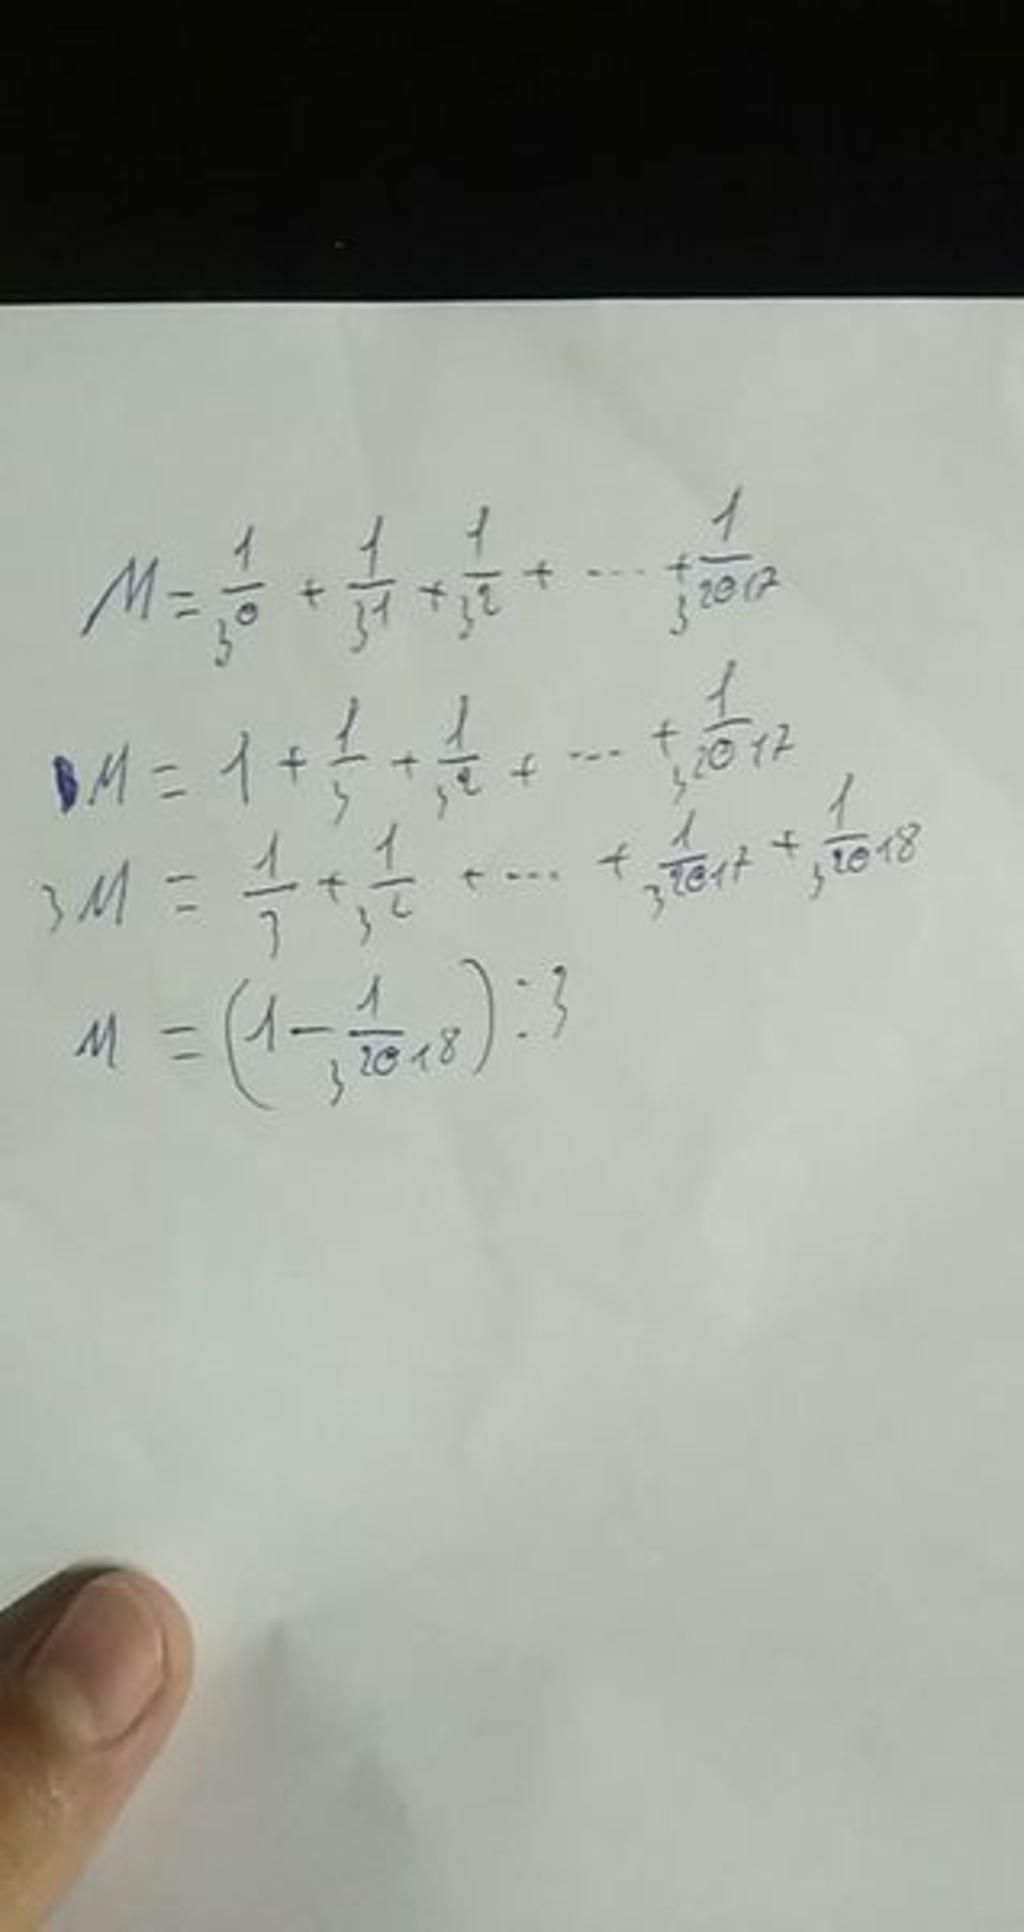 M = 1/3^0 + 1/3^1 + 1/3^2 + ... + 1/3^2017
M = 1 + 1/3 + 1/3^2 + ... + 1/3^2017
3M = 1/3 + 1/3^2 + ... + 1/3^2017 + 1/3^2018
M = (1 - 1/3^2018) : 3